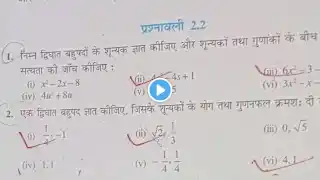 प्रश्नावली 2.2
1. निम्न द्विघात बहुपदों के शून्यक ज्ञात कीजिए और शून्यकों तथा गुणांकों के बीच
सत्यता की जाँच कीजिए :
(i) x² – 2x – 8 (ii) 4s + 1 (iii) 6x² – 3 –
(iv) 4u² + 8u (v) 5 (vi) 3x² – x –
2. एक द्विघात बहुपद ज्ञात कीजिए, जिसके शून्यकों के योग तथा गुणनफल क्रमशः दी
(i) 1/4, –1 (ii) √2, 1/3 (iii) 0, √5
(iv) 1,1 (v) –1/4, 1/4 (vi) 4,1